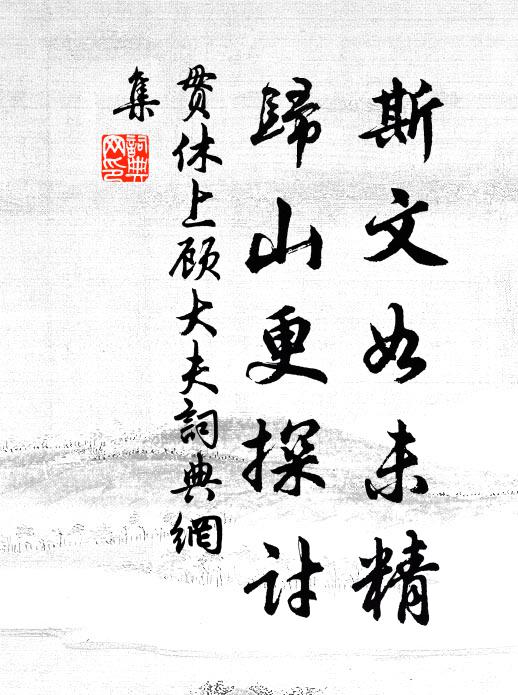 斯文如未精
歸山更探討
貫休上顾大夫詞典網
集
詞典
网印